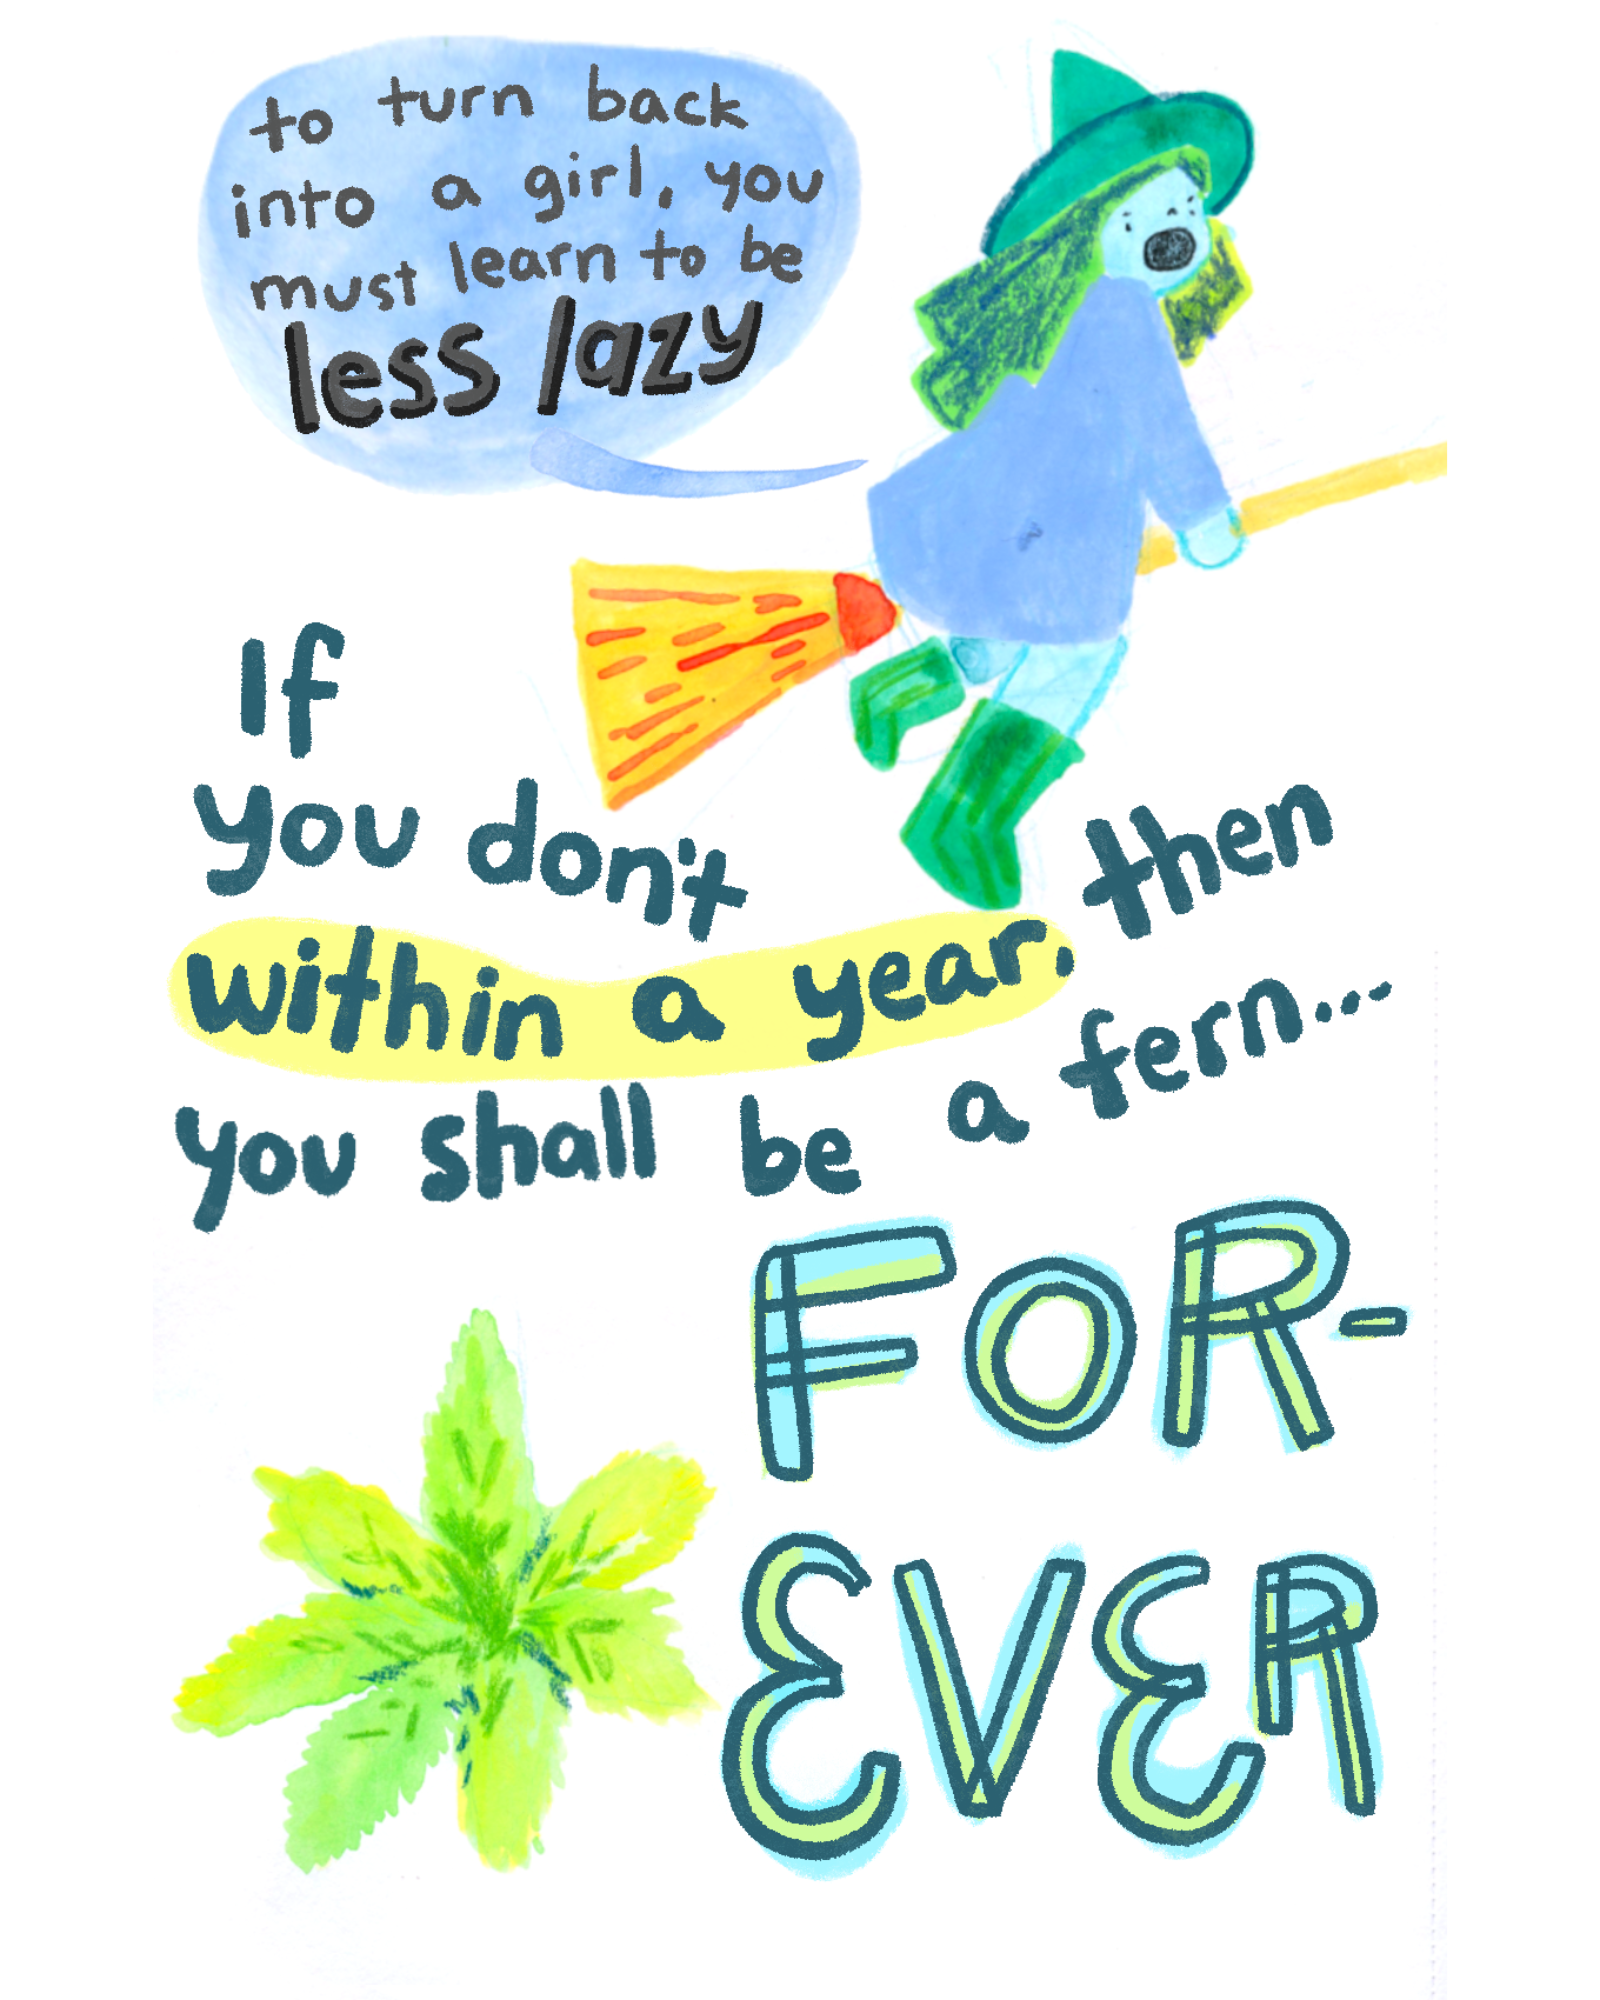 to turn back
into a girl, you
must learn to be
less lazy
If
you don't
within a year, then
you shall be a fern...
FOR-
EVER